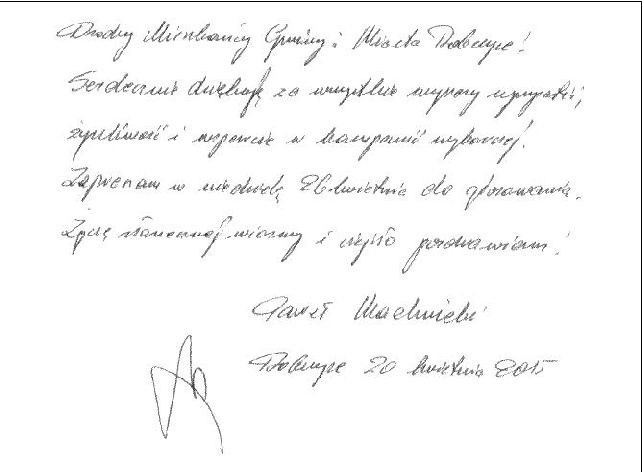 Drodzy Mieszkańcy Gminy i Miasta Dobczyce!
Serdecznie dziękuję za wszystkie wyrazy sympatii,
życzliwość i wsparcie w kampanii wyborczej.
Zapraszam w niedzielę 26 kwietnia do głosowania.
Życzę słonecznej wiosny i ciepło pozdrawiam!
Paweł Machnicki
Dobczyce 20 kwietnia 2015